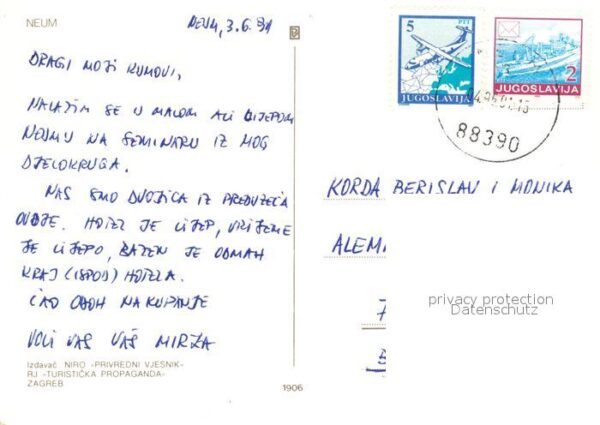 NEUM
NEUM, 3.6.91
DRAGI MOJI KUMOVI,
NALAZIM SE U MALOM ALI LIJEPOM
NEUMU NA SEMINARU IZ MOG
DJELOKRUGA.
NAS SMO DVOJICA IZ PREDUZEĆA
OVDJE. HOTEL JE LIJEP, VRIJEME
JE LIJEPO, BAZEN JE ODMAH
KRAJ (ISPOD) HOTELA.
ĆAO ODOH NA KUPANJE
VOLI VAS VAŠ MIRZA
Izdavač NIRO »PRIVREDNI VJESNIK«
RJ »TURISTIČKA PROPAGANDA«
ZAGREB
1906
5 PTT
JUGOSLAVIJA
2
JUGOSLAVIJA
88390
KORDA BERISLAV I MONIKA
ALEM
privacy protection
Datenschutz